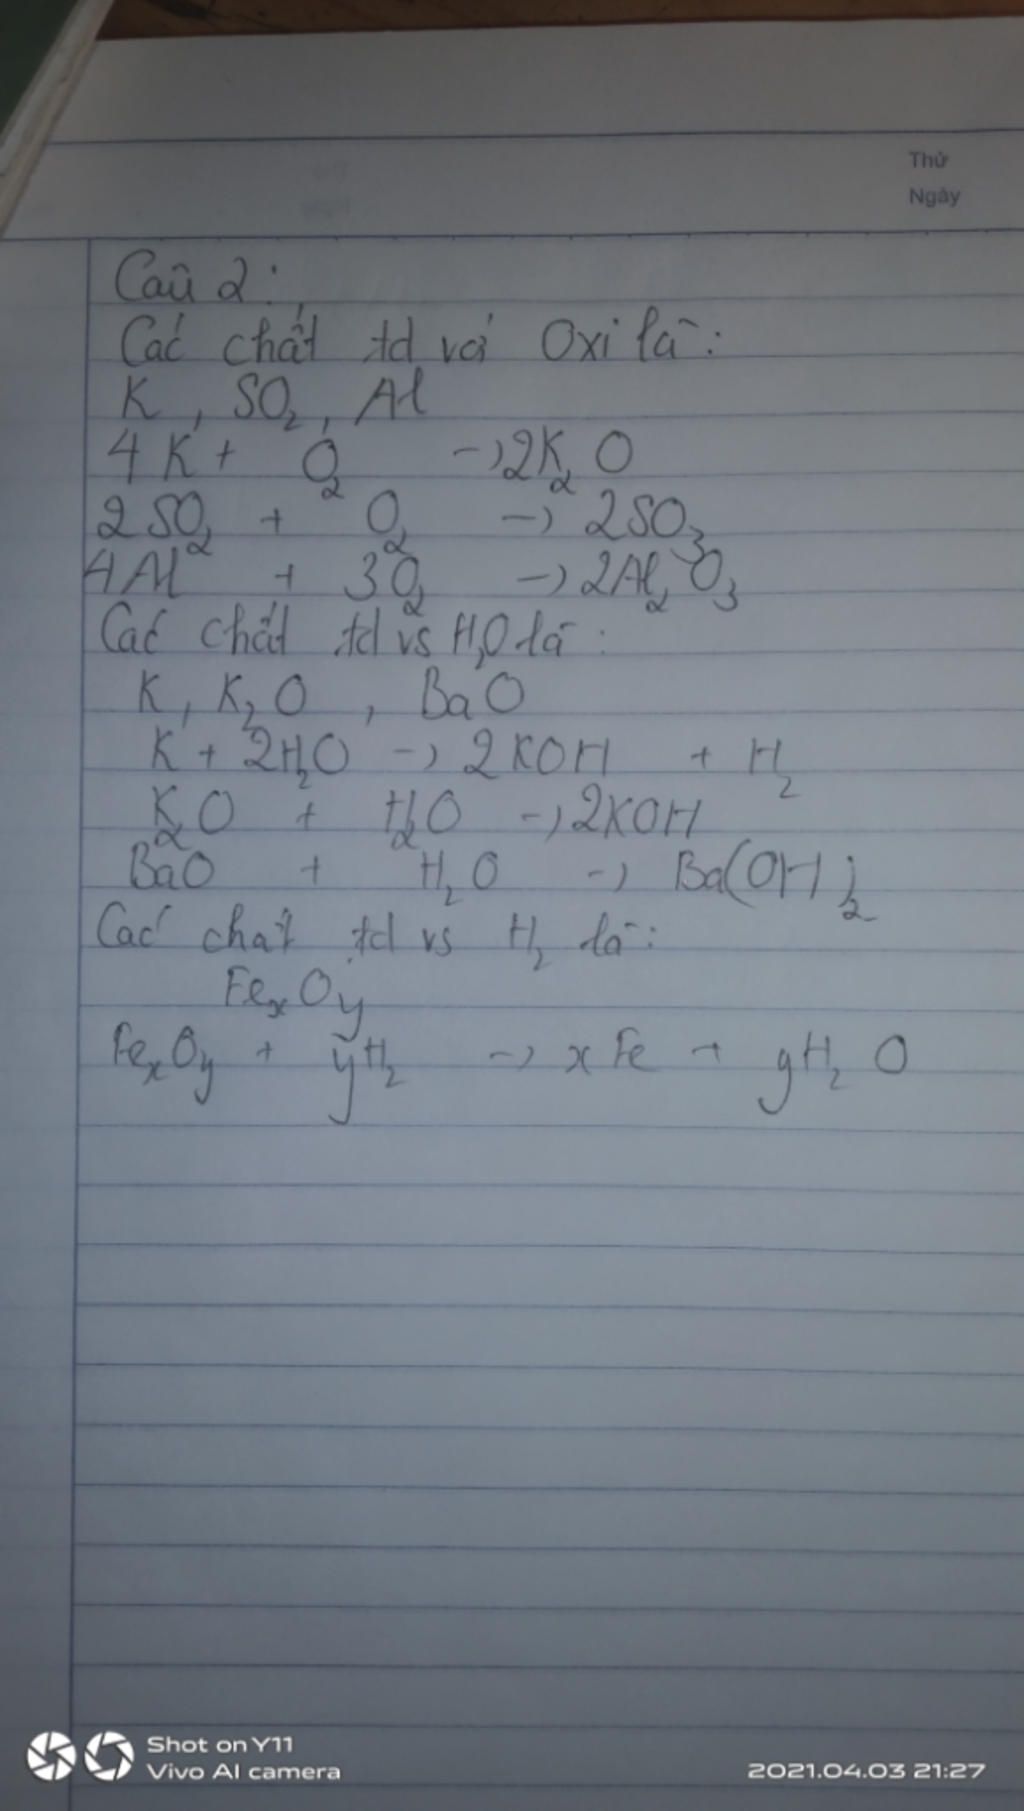 Thứ
Ngày
Câu 2:
Các chất td với Oxi là:
K, SO₂, Al
4K + O₂ → 2K₂O
2SO₂ + O₂ → 2SO₃
4Al + 3O₂ → 2Al₂O₃
Các chất td vs H₂O là:
K, K₂O, BaO
K + 2H₂O → 2KOH + H₂
K₂O + H₂O → 2KOH
BaO + H₂O → Ba(OH)₂
Các chất td vs H₂ là:
FeₓOy
FeₓOy + yH₂ → xFe + yH₂O
Shot on Y11
Vivo AI camera
2021.04.03 21:27